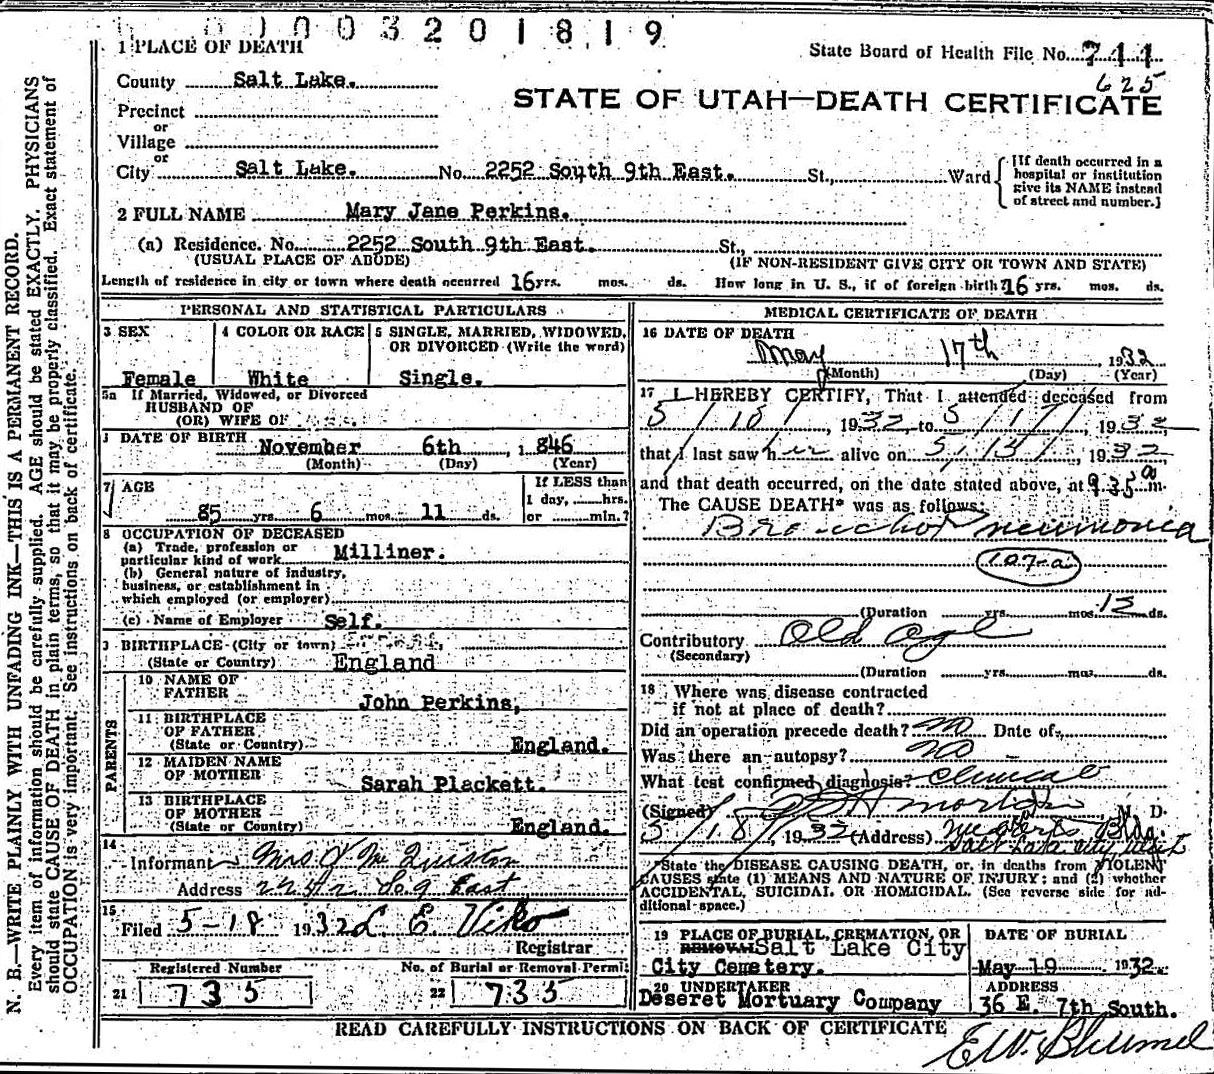 0 1 0 0 3 2 0 1 8 1 9
1 PLACE OF DEATH
State Board of Health File No. 711
625
County Salt Lake.
STATE OF UTAH—DEATH CERTIFICATE
Precinct
or
Village
or
City Salt Lake. No. 2252 South 9th East. St., Ward
[If death occurred in a
hospital or institution
give its NAME instead
of street and number.]
2 FULL NAME Mary Jane Perkins.
(a) Residence. No. 2252 South 9th East. St.,
(USUAL PLACE OF ABODE) (IF NON-RESIDENT GIVE CITY OR TOWN AND STATE)
Length of residence in city or town where death occurred 16 yrs. mos. ds. How long in U. S., if of foreign birth? 16 yrs. mos. ds.
PERSONAL AND STATISTICAL PARTICULARS
3 SEX
Female
4 COLOR OR RACE
White
5 SINGLE, MARRIED, WIDOWED,
OR DIVORCED (Write the word)
Single.
5a If Married, Widowed, or Divorced
HUSBAND OF
(OR) WIFE OF
DATE OF BIRTH November 6th, 1846
(Month) (Day) (Year)
7 AGE
85 yrs. 6 mos. 11 ds.
If LESS than
1 day, hrs.
or min.?
8 OCCUPATION OF DECEASED
(a) Trade, profession or
particular kind of work Milliner.
(b) General nature of industry,
business, or establishment in
which employed (or employer)
(c) Name of Employer Self.
BIRTHPLACE (City or town)
(State or Country) England
PARENTS
10 NAME OF
FATHER John Perkins,
11 BIRTHPLACE
OF FATHER
(State or Country) England.
12 MAIDEN NAME
OF MOTHER Sarah Plackett.
13 BIRTHPLACE
OF MOTHER
(State or Country) England.
14
Informant Mrs J McQuiston
Address 2252 So. 9 East
15
Filed 5-18 1932 L E Viko
Registrar
Registered Number
21 735
No. of Burial or Removal Permit
22 735
MEDICAL CERTIFICATE OF DEATH
16 DATE OF DEATH
May 17th 1932
(Month) (Day) (Year)
17 I HEREBY CERTIFY, That I attended deceased from
5/10/, 1932, to 5/17/, 1932
that I last saw her alive on 1932
and that death occurred, on the date stated above, at 9.35 a m.
The CAUSE DEATH* was as follows:
Broncho pneumonia
107-a
(Duration yrs. mos. ds.
Contributory Old Age
(Secondary)
(Duration yrs. mos. ds.
18 Where was disease contracted
if not at place of death?
Did an operation precede death? no Date of
Was there an autopsy? no
What test confirmed diagnosis? Clinical
(Signed) Morton M. D.
5/18/, 1932 (Address) Bldg.
Salt Lake City Utah
*State the DISEASE CAUSING DEATH, or, in deaths from VIOLENT
CAUSES state (1) MEANS AND NATURE OF INJURY; and (2) whether
ACCIDENTAL, SUICIDAL OR HOMICIDAL. (See reverse side for ad-
ditional space.)
19 PLACE OF BURIAL, CREMATION, OR
REMOVAL Salt Lake City
City Cemetery.
DATE OF BURIAL
May 19 1932.
20 UNDERTAKER
Deseret Mortuary Company
ADDRESS
36 E. 7th South.
READ CAREFULLY INSTRUCTIONS ON BACK OF CERTIFICATE
E.W. Blumel
N. B.—WRITE PLAINLY WITH UNFADING INK—THIS IS A PERMANENT RECORD.
Every item of information should be carefully supplied. AGE should be stated EXACTLY. PHYSICIANS
should state CAUSE OF DEATH in plain terms, so that it may be properly classified. Exact statement of
OCCUPATION is very important. See instructions on back of certificate.